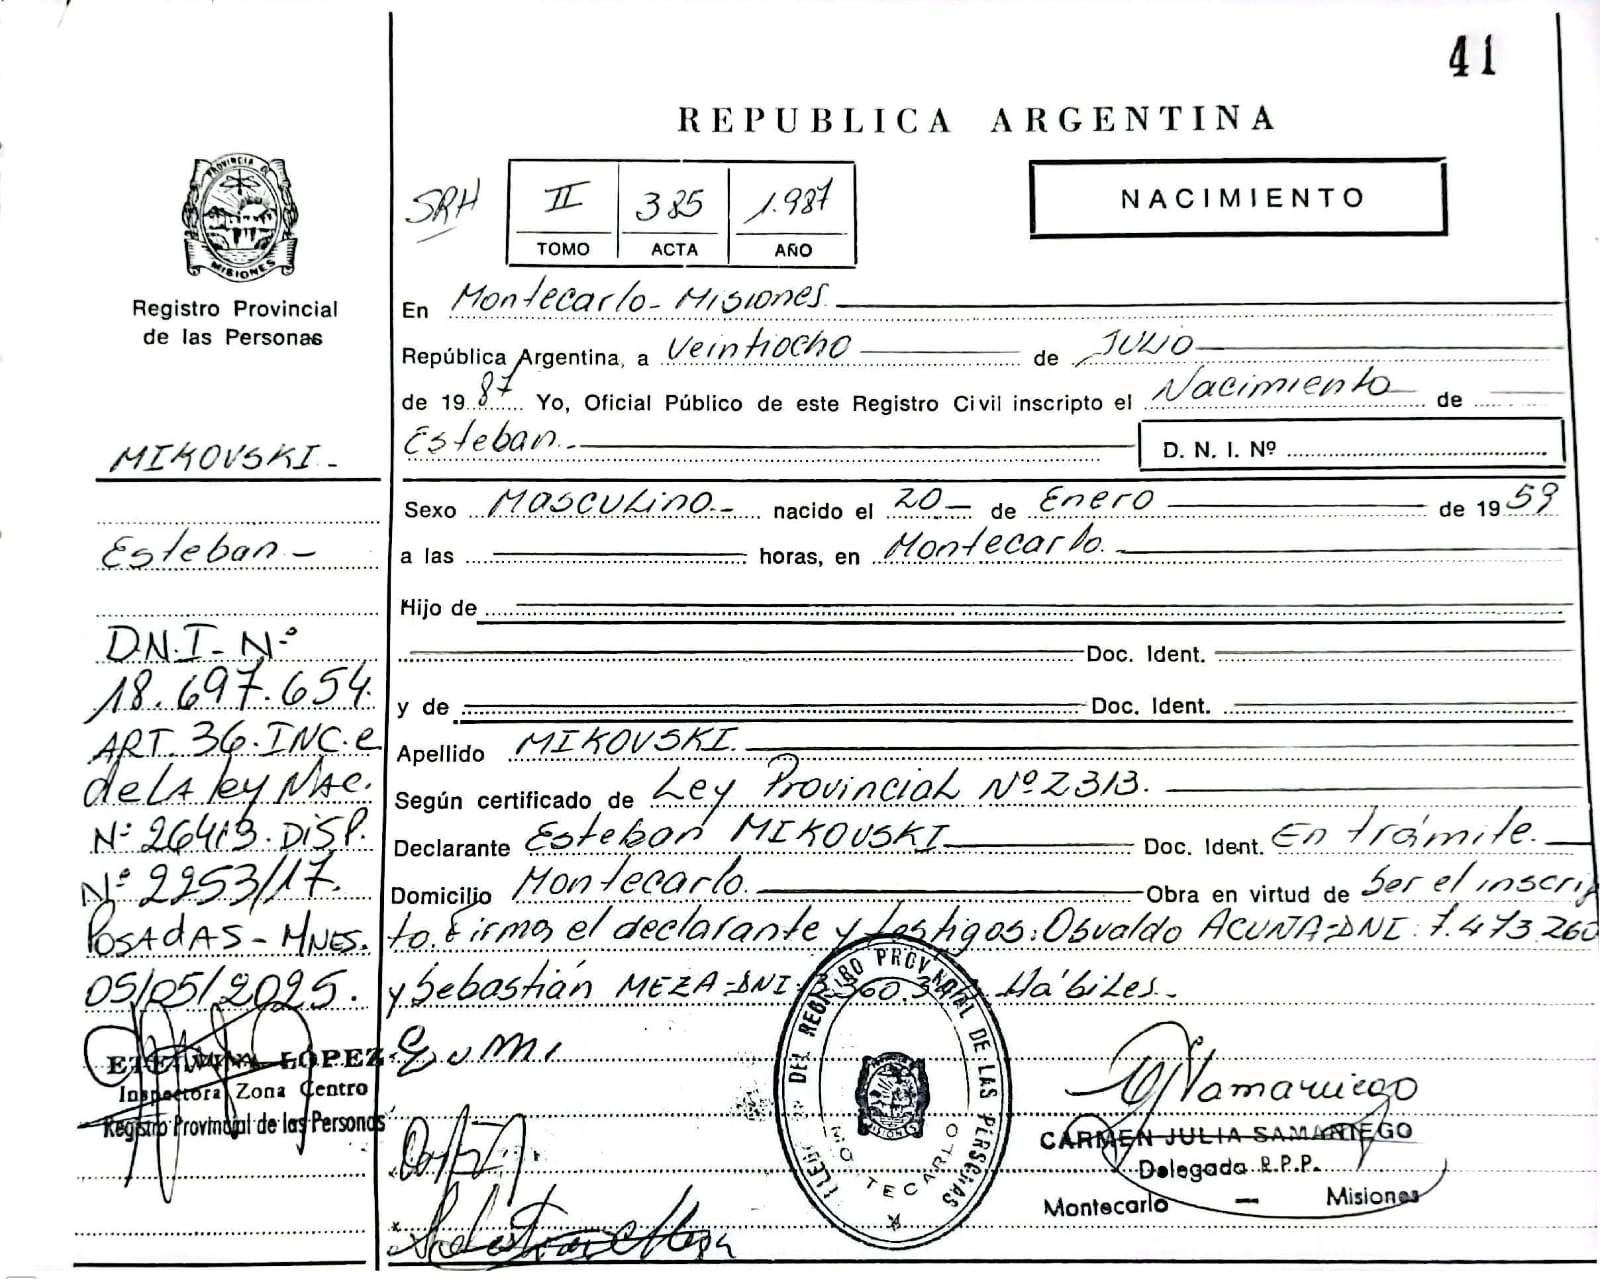 41
REPUBLICA ARGENTINA
PROVINCIA D
MISIONES
Registro Provincial
de las Personas
SRH
II 385 1.987
TOMO ACTA AÑO
NACIMIENTO
En Montecarlo - Misiones.
República Argentina, a Veintiocho de JULIO
de 19 87 Yo, Oficial Público de este Registro Civil inscripto el Nacimiento de
Esteban.- D. N. I. Nº
Sexo Masculino.- nacido el 20 - de Enero de 19 59
a las horas, en Montecarlo.
Hijo de
Doc. Ident.
y de Doc. Ident.
Apellido MIKOVSKI.
Según certificado de Ley Provincial Nº 2313.
Declarante Esteban MIKOVSKI Doc. Ident. En trámite.
Domicilio Montecarlo. Obra en virtud de Ser el inscrip
to. Firman el declarante y testigos: Osvaldo ACUÑA=DNI: 7.473.260
y Sebastián MEZA=DNI: Hábiles.-
MIKOVSKI -
Esteban -
D.N.I - Nº
18.697.654.
ART. 36. INC. e
de LA ley NAC.
Nº 26413. DISP.
Nº 2253/17.
POSADAS - MNES.
05/05/2025.
LOPEZ
Inspectora Zona Centro
Registro Provincial de las Personas
DEL REGISTRO PROVINCIAL DE LAS PERSONAS
MONTECARLO
CARMEN JULIA SAMANIEGO
Delegada R.P.P.
Montecarlo — Misiones